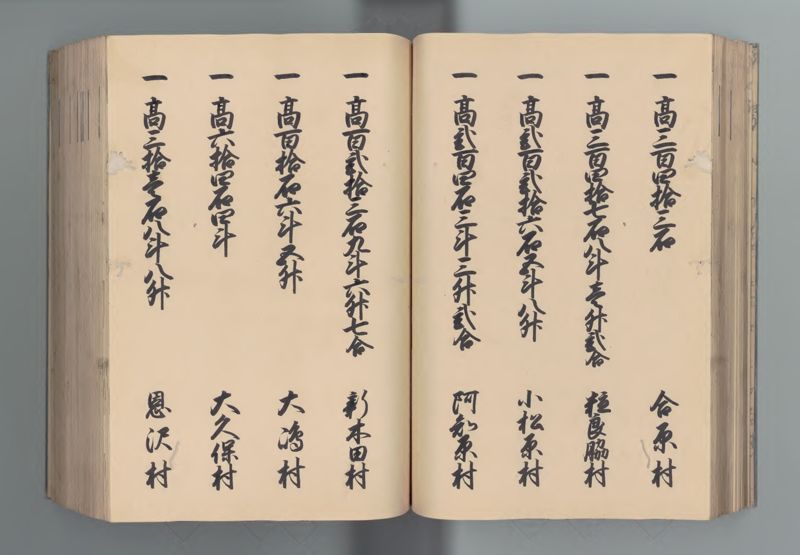 一 高三百四拾三石 合原村
一 高三百四拾七石八斗壱升弐合 粒良脇村
一 高弐百弐拾六石五斗八升 小松原村
一 高弐百四石三斗三升弐合 阿知原村
一 高百弐拾三石九斗六升七合 新本田村
一 高百拾石六斗五升 大嶋村
一 高六拾四石四斗 大久保村
一 高三拾壱石八斗八升 恩沢村